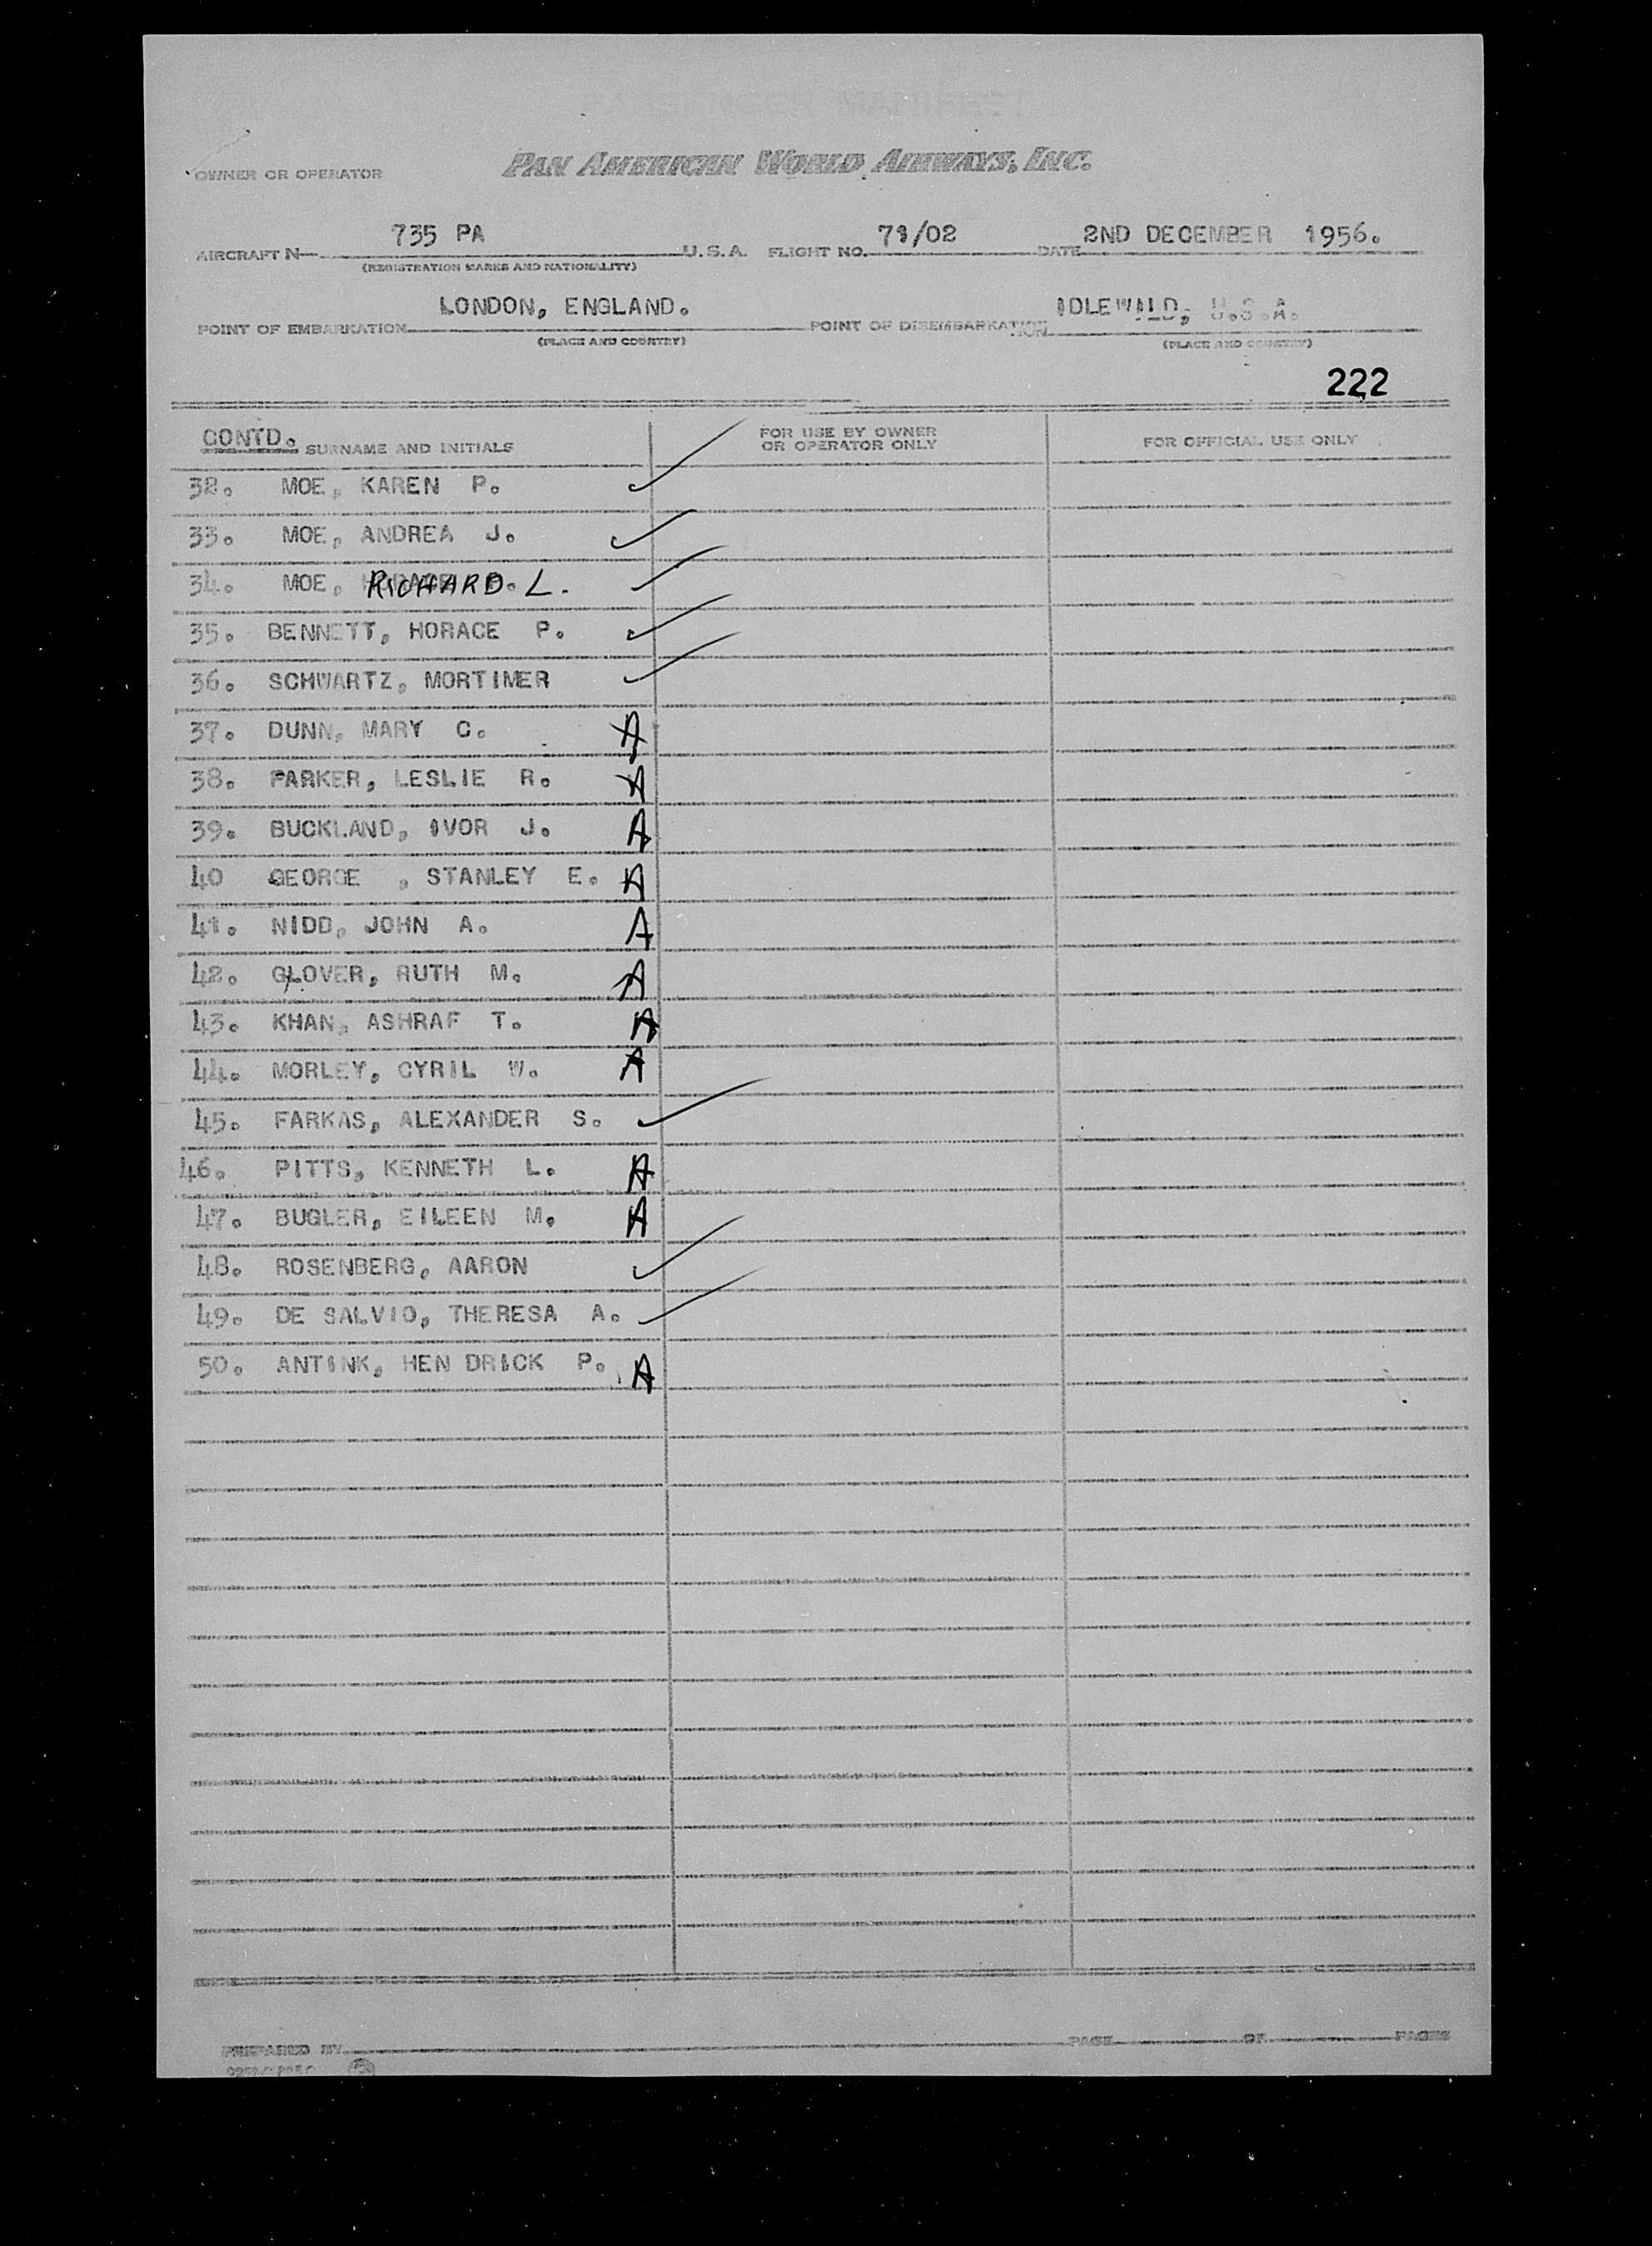 PASSENGER MANIFEST
OWNER OR OPERATOR PAN AMERICAN WORLD AIRWAYS, INC.
AIRCRAFT N— 735 PA U.S.A. FLIGHT NO. 71/02 DATE 2ND DECEMBER 1956.
(REGISTRATION MARKS AND NATIONALITY)
POINT OF EMBARKATION LONDON, ENGLAND. POINT OF DISEMBARKATION IDLEWILD, U.S.A.
(PLACE AND COUNTRY) (PLACE AND COUNTRY)
222
CONTD. SURNAME AND INITIALS FOR USE BY OWNER OR OPERATOR ONLY FOR OFFICIAL USE ONLY
32. MOE, KAREN P. ✓
33. MOE, ANDREA J. ✓
34. MOE, RICHARD L. ✓
35. BENNETT, HORACE P. ✓
36. SCHWARTZ, MORTIMER ✓
37. DUNN, MARY C. A
38. PARKER, LESLIE R. A
39. BUCKLAND, IVOR J. A
40 GEORGE , STANLEY E. A
41. NIDD, JOHN A. A
42. GLOVER, RUTH M. A
43. KHAN, ASHRAF T. A
44. MORLEY, CYRIL W. A
45. FARKAS, ALEXANDER S. ✓
46. PITTS, KENNETH L. A
47. BUGLER, EILEEN M. A
48. ROSENBERG, AARON ✓
49. DE SALVIO, THERESA A. ✓
50. ANTINK, HEN DRICK P. A
PREPARED BY PAGE OF PAGES